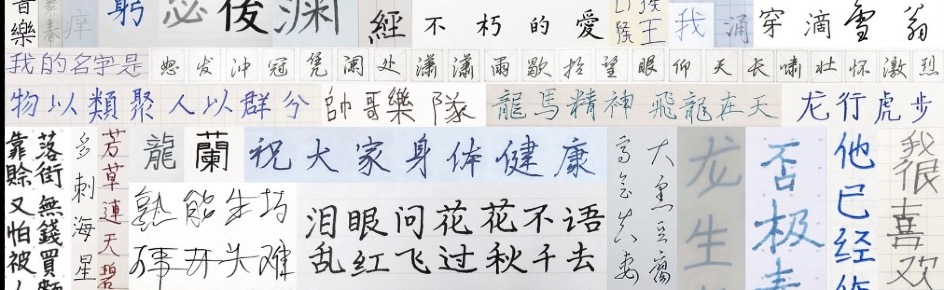 音樂
痒
躬
必
後
渊
經不朽的愛
猴王
我
涌
穿
滴
雪
翁
我的名字是
怒发冲冠凭阑处潇潇雨歇抬望眼仰天长啸壮怀激烈
物以類聚人以群分
帥哥樂隊
龍馬精神飛龍在天
龙行虎步
靠賒又怕被人
落街無錢買麵
多刺海星
芳草連天碧
龍
蘭
祝大家身体健康
熟能生巧
万事开头难
泪眼问花花不语
乱红飞过秋千去
大煮豆腐
龙生
否极泰
他已经
我很喜欢